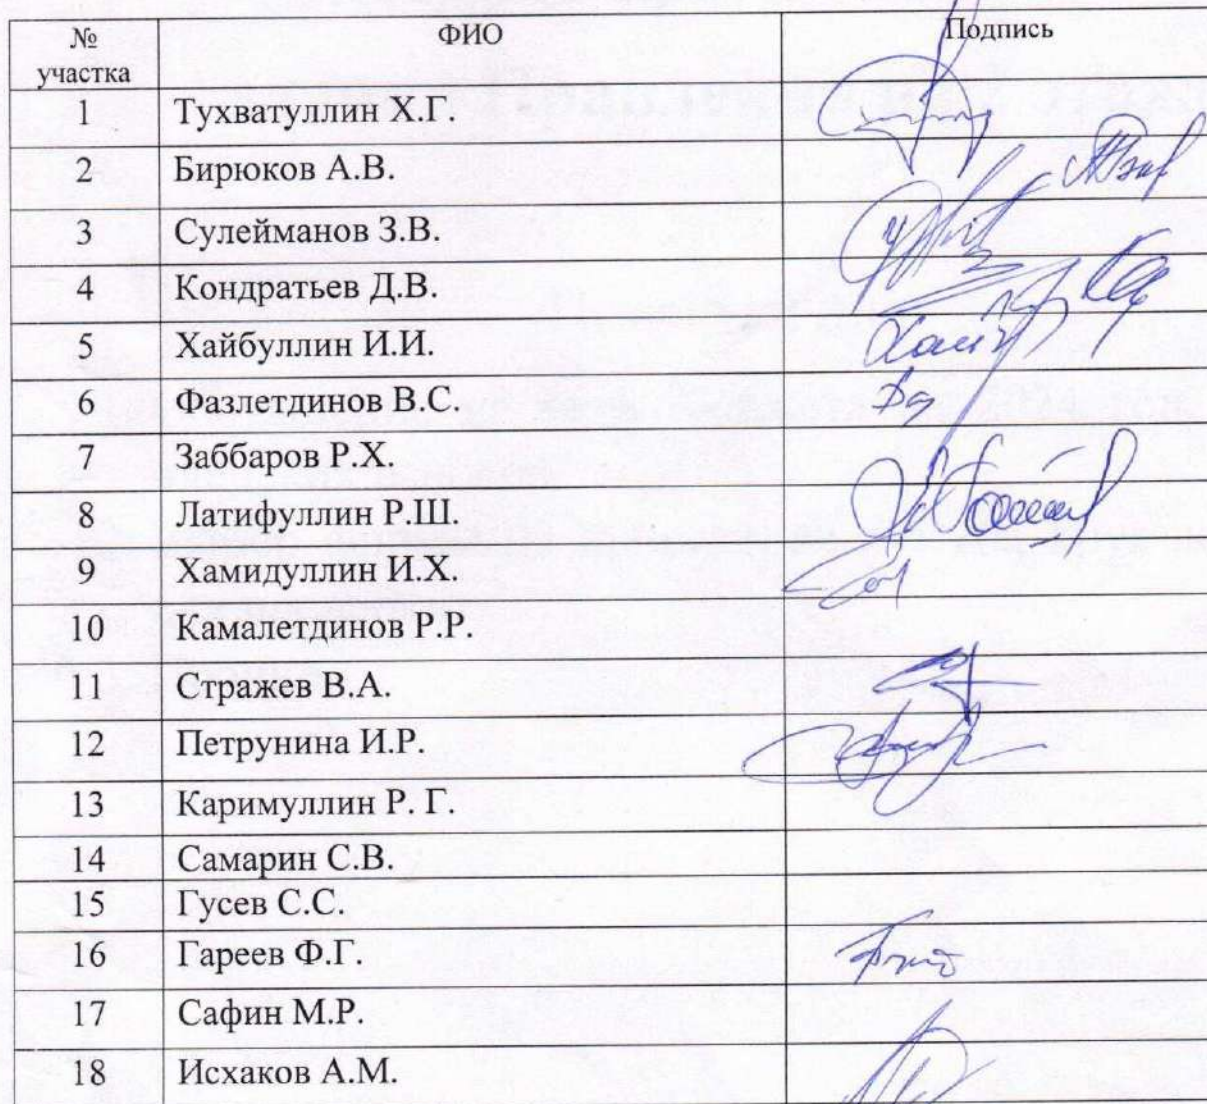 № участка ФИО Подпись
1 Тухватуллин Х.Г.
2 Бирюков А.В.
3 Сулейманов З.В.
4 Кондратьев Д.В.
5 Хайбуллин И.И.
6 Фазлетдинов В.С.
7 Заббаров Р.Х.
8 Латифуллин Р.Ш.
9 Хамидуллин И.Х.
10 Камалетдинов Р.Р.
11 Стражев В.А.
12 Петрунина И.Р.
13 Каримуллин Р. Г.
14 Самарин С.В.
15 Гусев С.С.
16 Гареев Ф.Г.
17 Сафин М.Р.
18 Исхаков А.М.